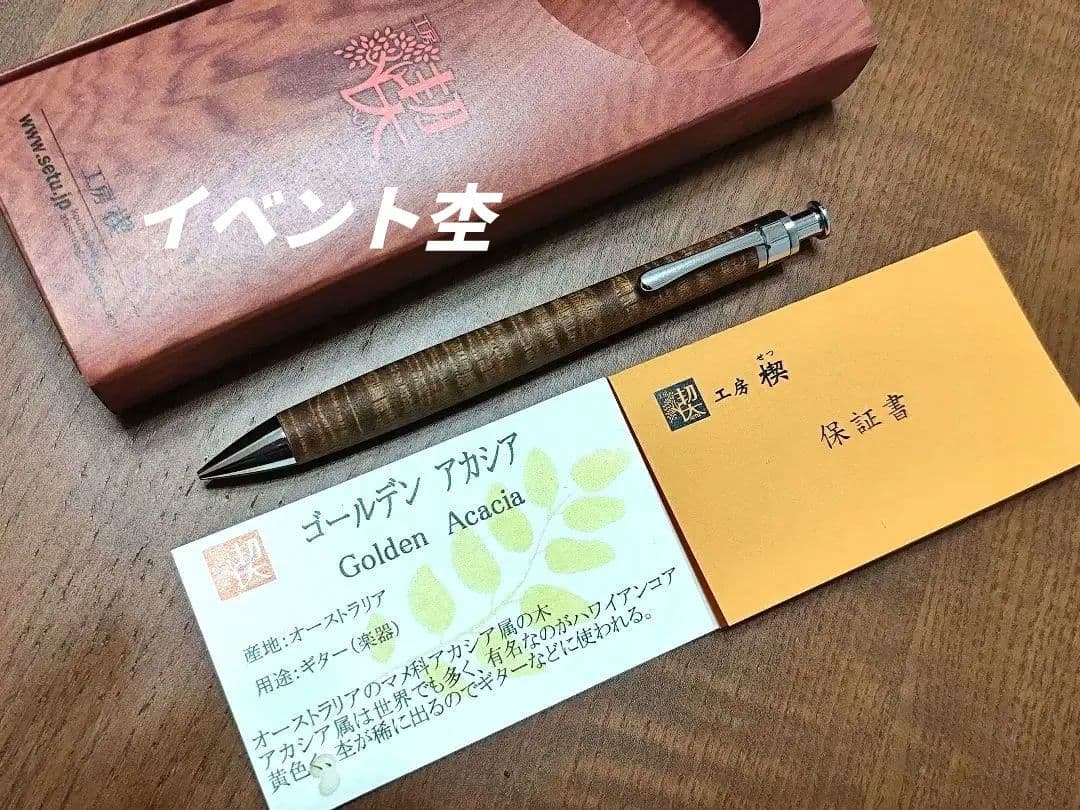 工房
楔
工房 楔
www.setu.jp
イベント杢
せつ
工房 楔
保証書
ゴールデン アカシア
Golden Acacia
産地：オーストラリア
用途：ギター（楽器）
オーストラリアのマメ科アカシア属の木
アカシア属は世界でも多く、有名なのがハワイアンコア
黄色く、杢が稀に出るのでギターなどに使われる。